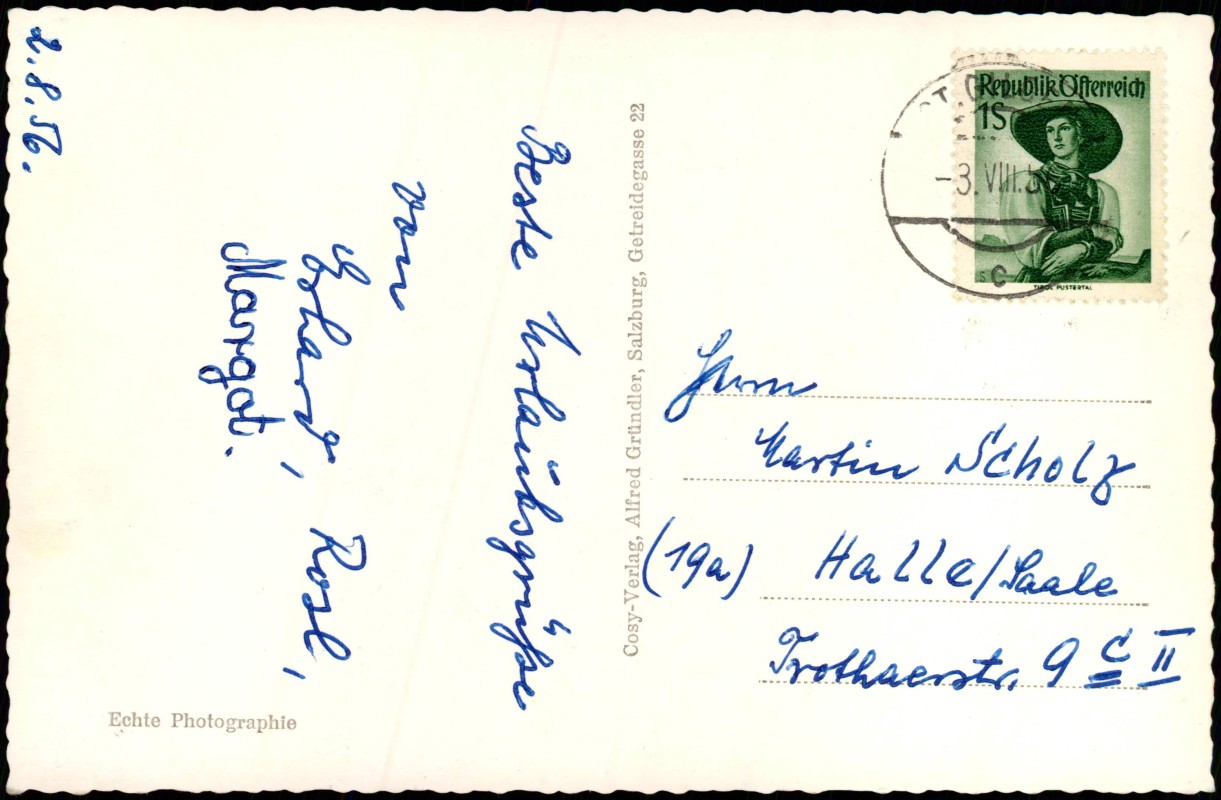 2.8.56.
Beste Urlaubsgrüße
von
Erhard, Rosl,
Margot.
Echte Photographie
Cosy-Verlag, Alfred Gründler, Salzburg, Getreidegasse 22
Republik Österreich
1S
TIROL PUSTERTAL
-3.VIII.5
c
Herrn
Martin Scholz
(19a) Halle/Saale
Trothaerstr. 9 c II